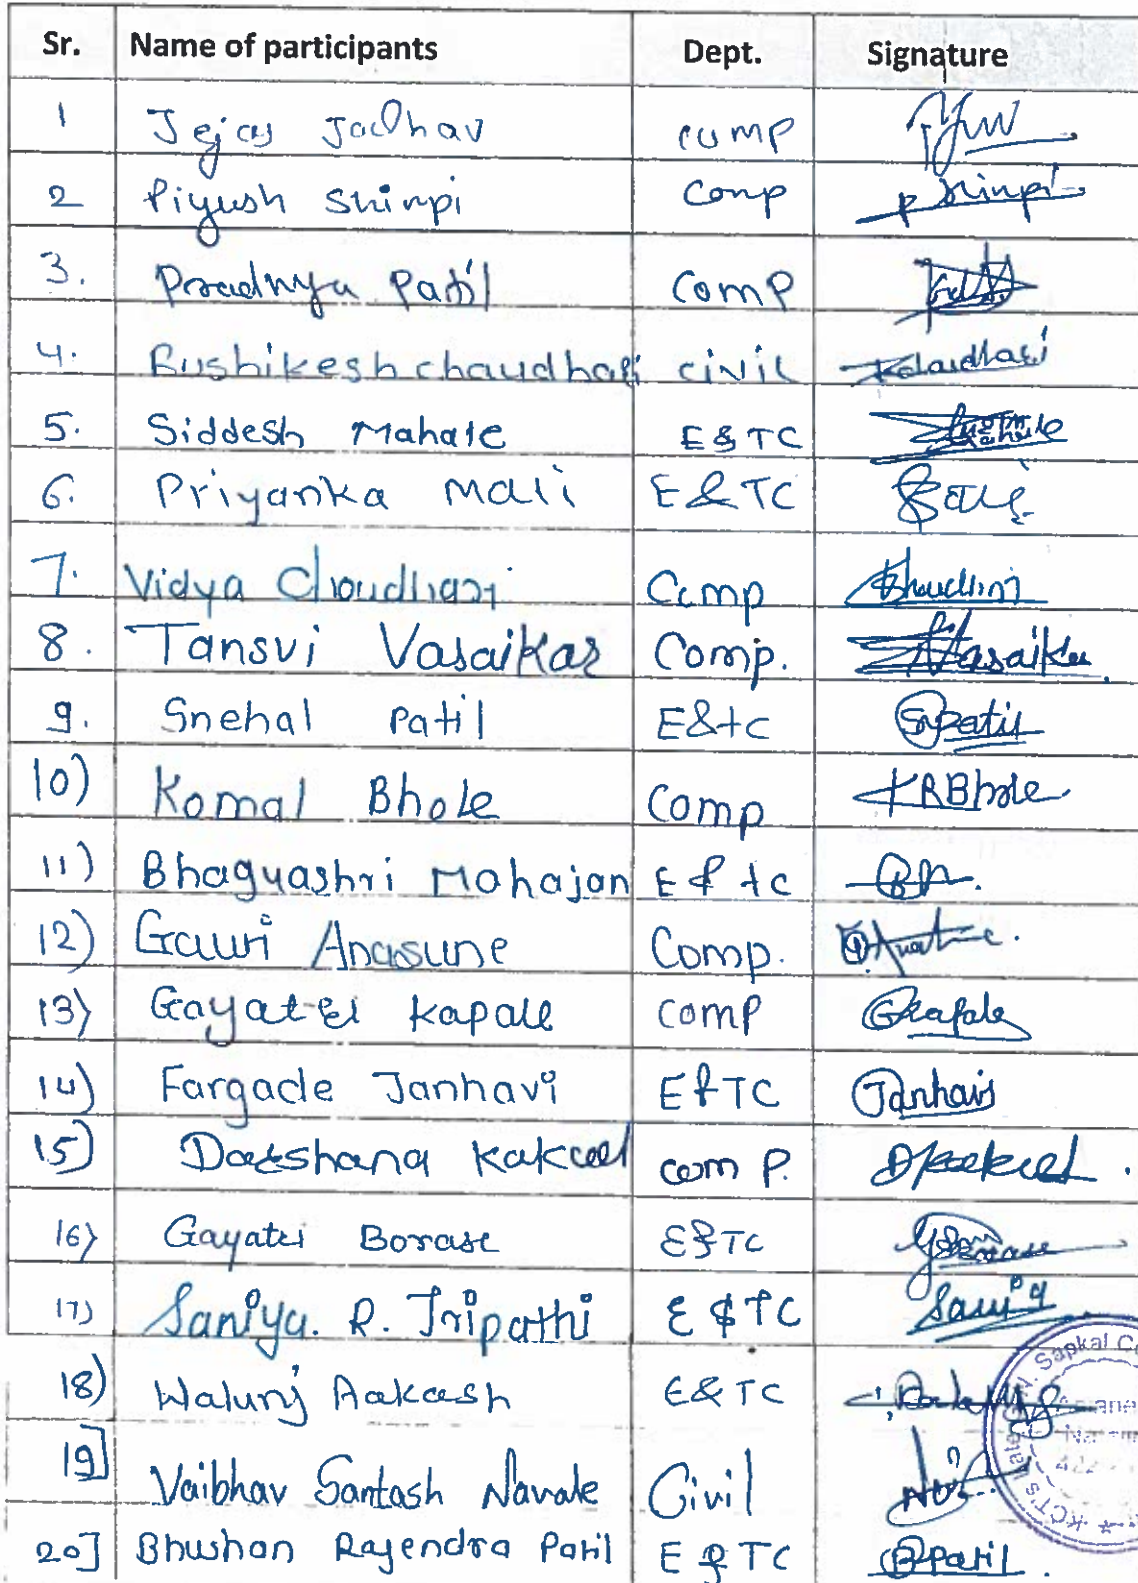 Sr. Name of participants Dept. Signature
1 Tejas Jadhav comp
2 Piyush Shinpi Comp P Shinpi
3. Pradnya Patil Comp
4. Rushikesh chaudhari civil
5. Siddesh Mahale E & TC
6. Priyanka Mali E & TC
7. Vidya Choudhari Comp
8. Tansvi Vasaikar Comp. Vasaikar
9. Snehal Patil E&tc SPatil
10) Komal Bhole Comp KRBhole
11) Bhagyashri Mahajan E & tc
12) Gauri Anasune Comp.
13) Gayatri Kapale comp GKapale
14) Fargade Janhavi E & TC Janhavi
15) Darshana Kakad comp.
16) Gayatri Borase E&TC
17) Saniya. R. Tripathi E & TC Saniya
18) Walunj Aakash E& TC
19] Vaibhav Santosh Navale Civil
20] Bhushan Rajendra Patil E & TC BPatil.
Sapkal
KCT's Late